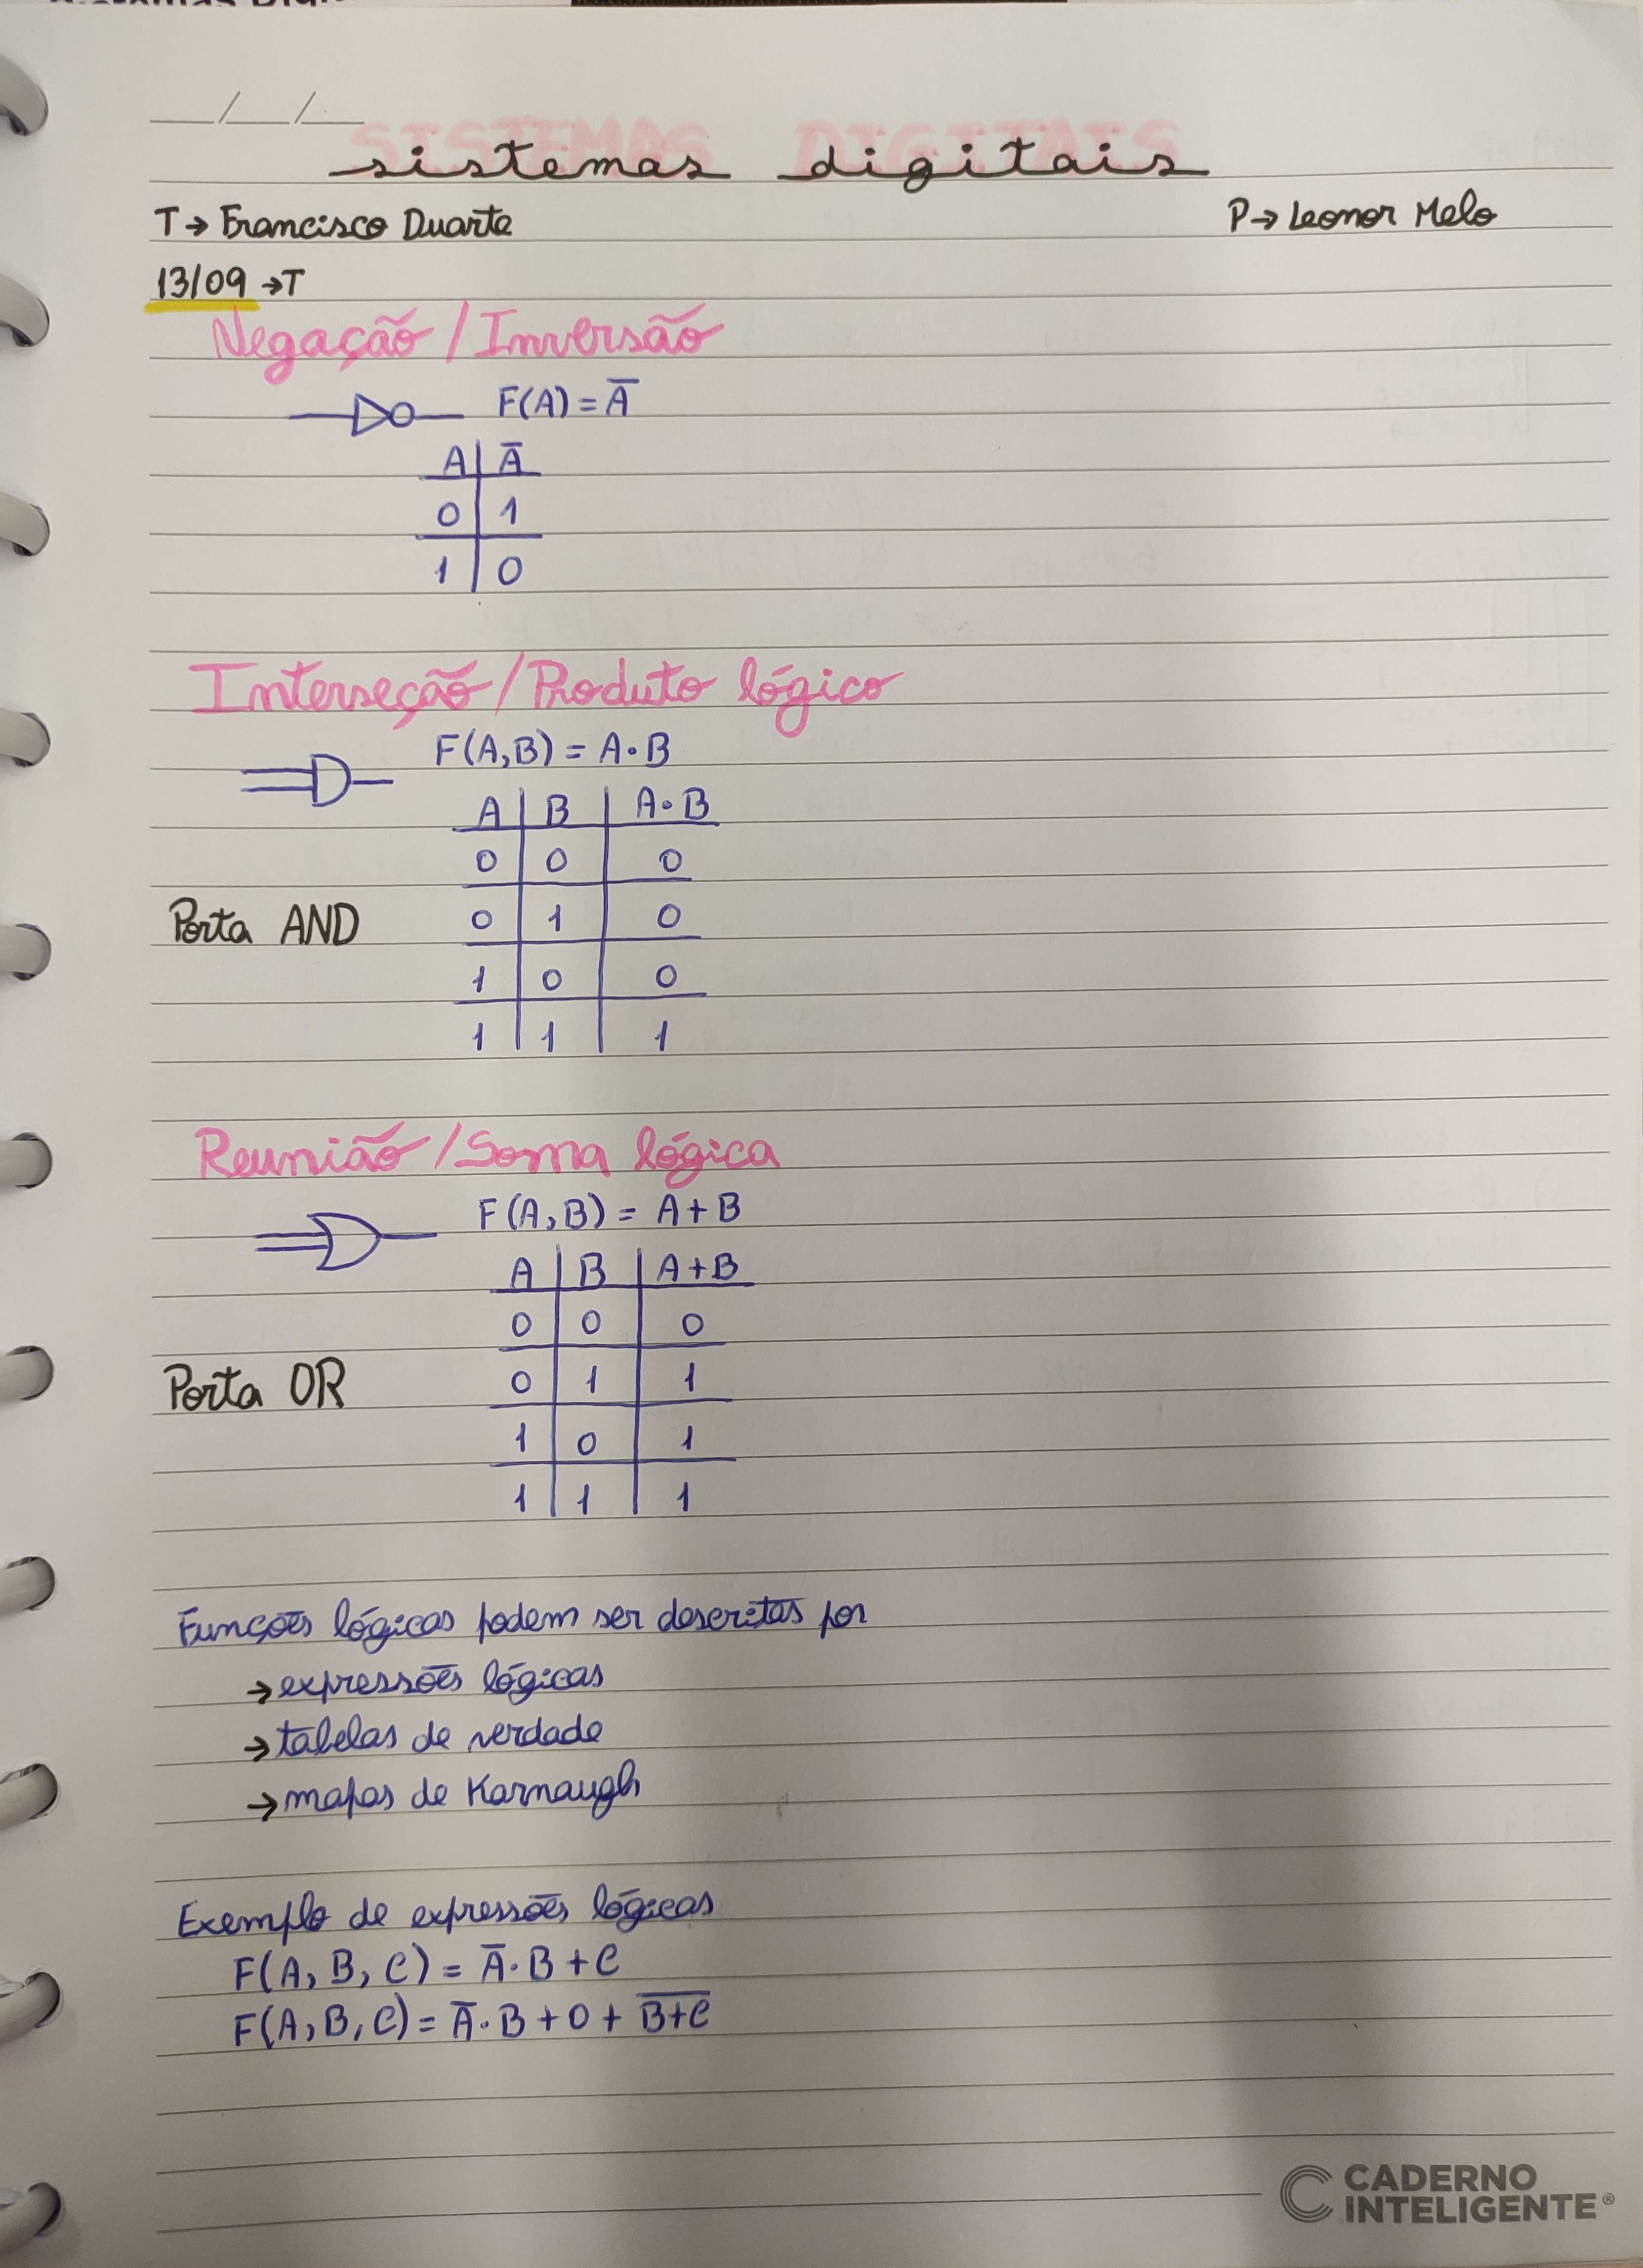 sistemas digitais
T→ Francisco Duarte P→ Leonor Melo
13/09 →T
Negação / Inversão
F(A) = A̅
A | A̅
0 | 1
1 | 0
Interseção / Produto lógico
F(A,B) = A•B
A | B | A•B
0 | 0 | 0
Porta AND
0 | 1 | 0
1 | 0 | 0
1 | 1 | 1
Reunião / Soma lógica
F(A,B) = A+B
A | B | A+B
0 | 0 | 0
Porta OR
0 | 1 | 1
1 | 0 | 1
1 | 1 | 1
Funções lógicas podem ser descritas por
→ expressões lógicas
→ tabelas de verdade
→ mapas de Karnaugh
Exemplo de expressões lógicas
F(A, B, C) = A̅·B + C
F(A, B, C) = A̅·B + 0 + B̅+̅C̅
CADERNO
INTELIGENTE®